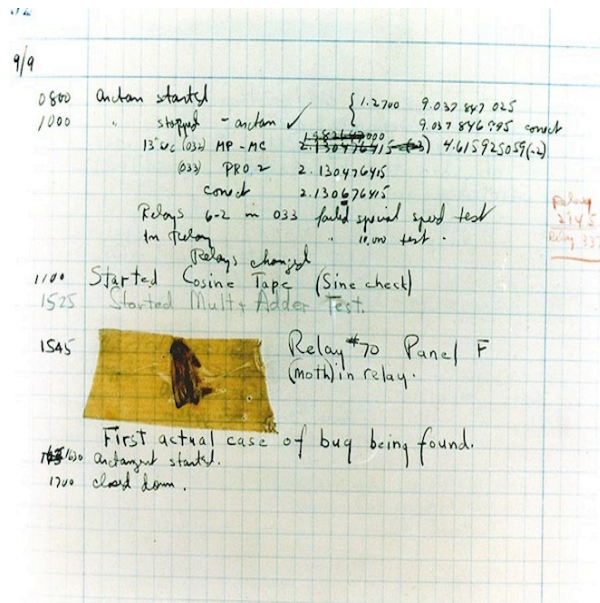 9/9
0800 Arctan started { 1.2700 9.037 847 025
1000 " stopped - arctan ✓ 9.037 846 995 correct
13"sec (032) MP - MC 2.130476415 (-3) 4.615925059(-2)
(033) PRO 2 2.130476415
correct 2.130676415
Relays 6-2 in 033 failed special speed test
In Relay " 10,000 test .
Relays changed
1100 Started Cosine Tape (Sine check)
1525 Started Mult + Adder Test.
1545 Relay #70 Panel F
(moth) in relay.
First actual case of bug being found.
1630 arctangent started.
1700 closed down .
Relay
2145
Relay 337